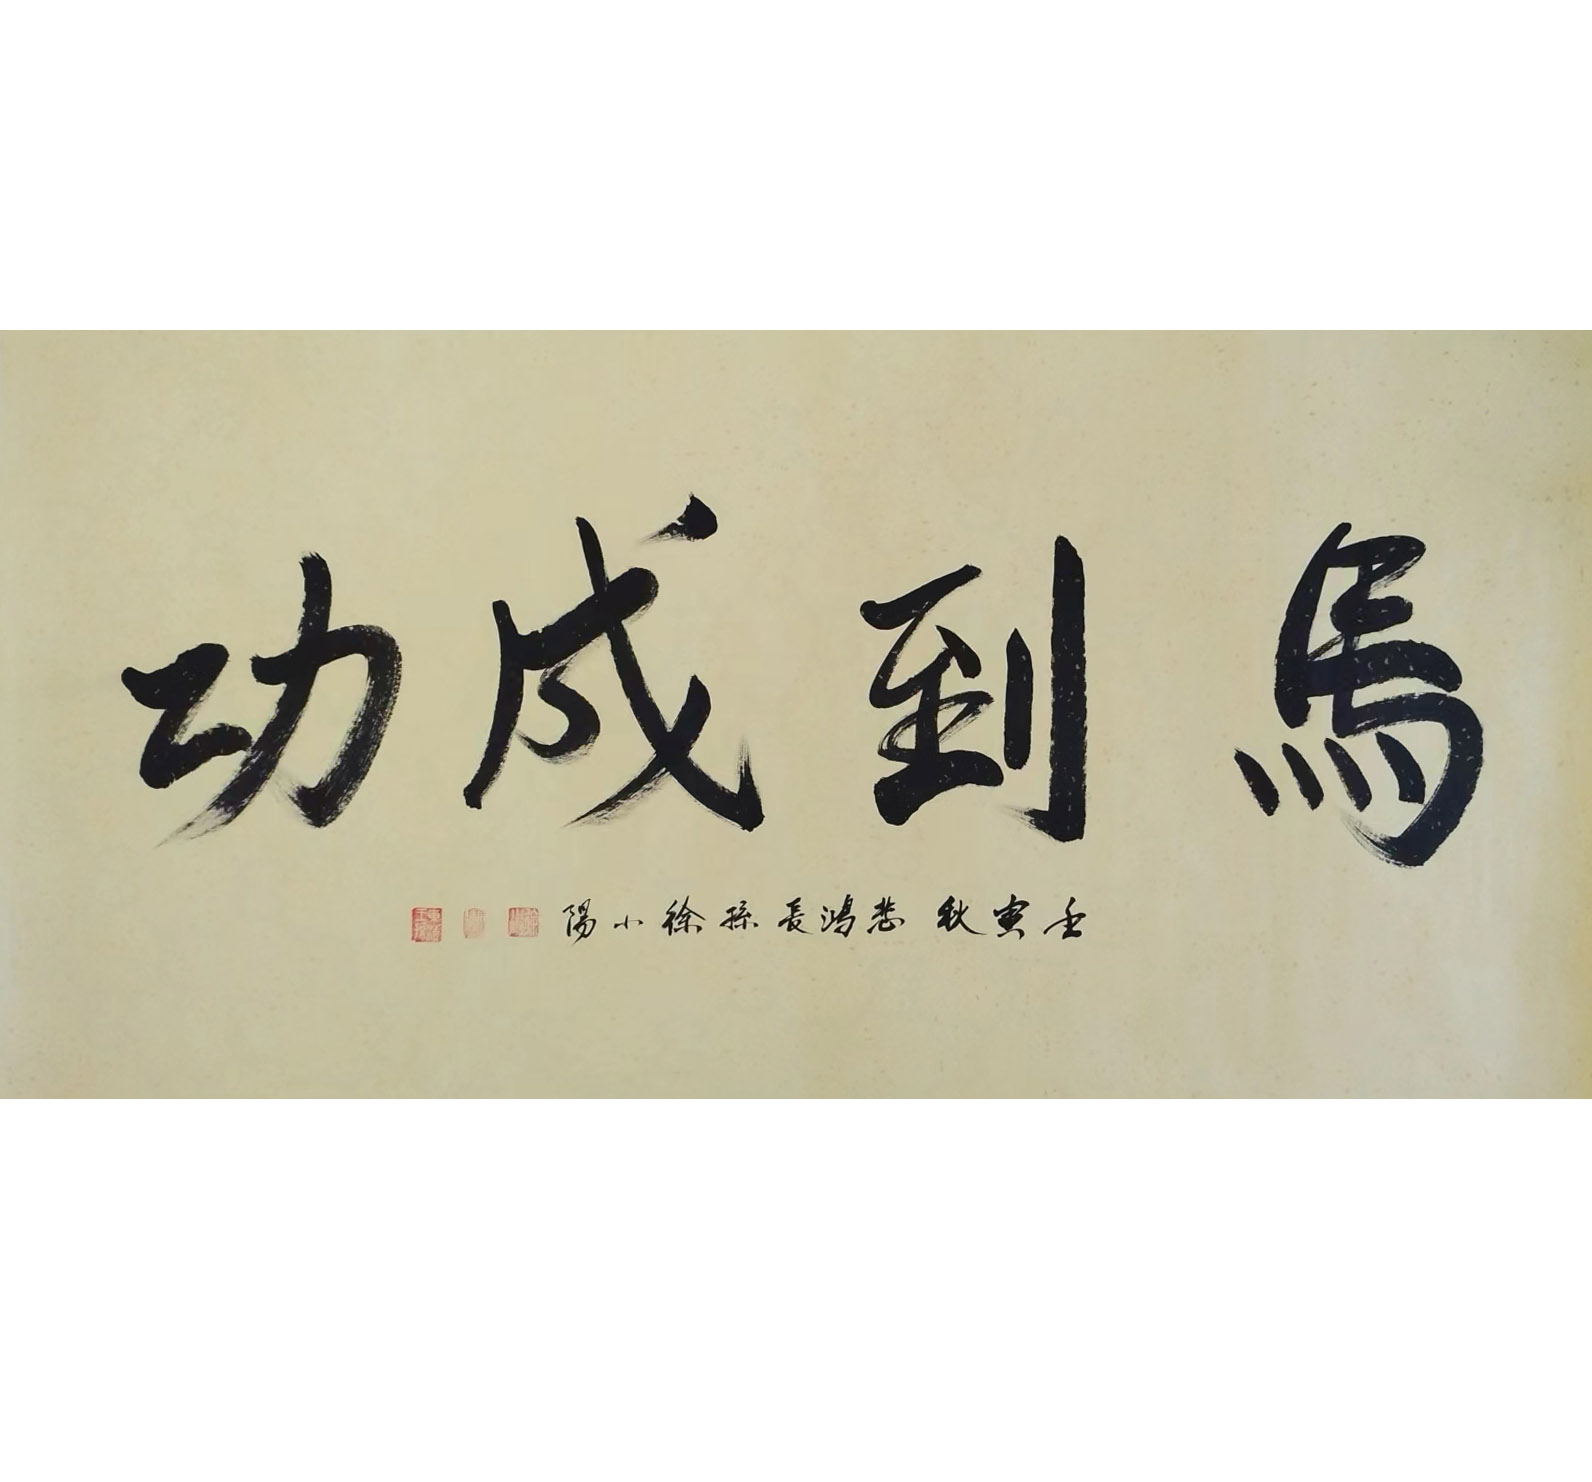 馬到成功
壬寅秋 悲鴻長孫徐小陽